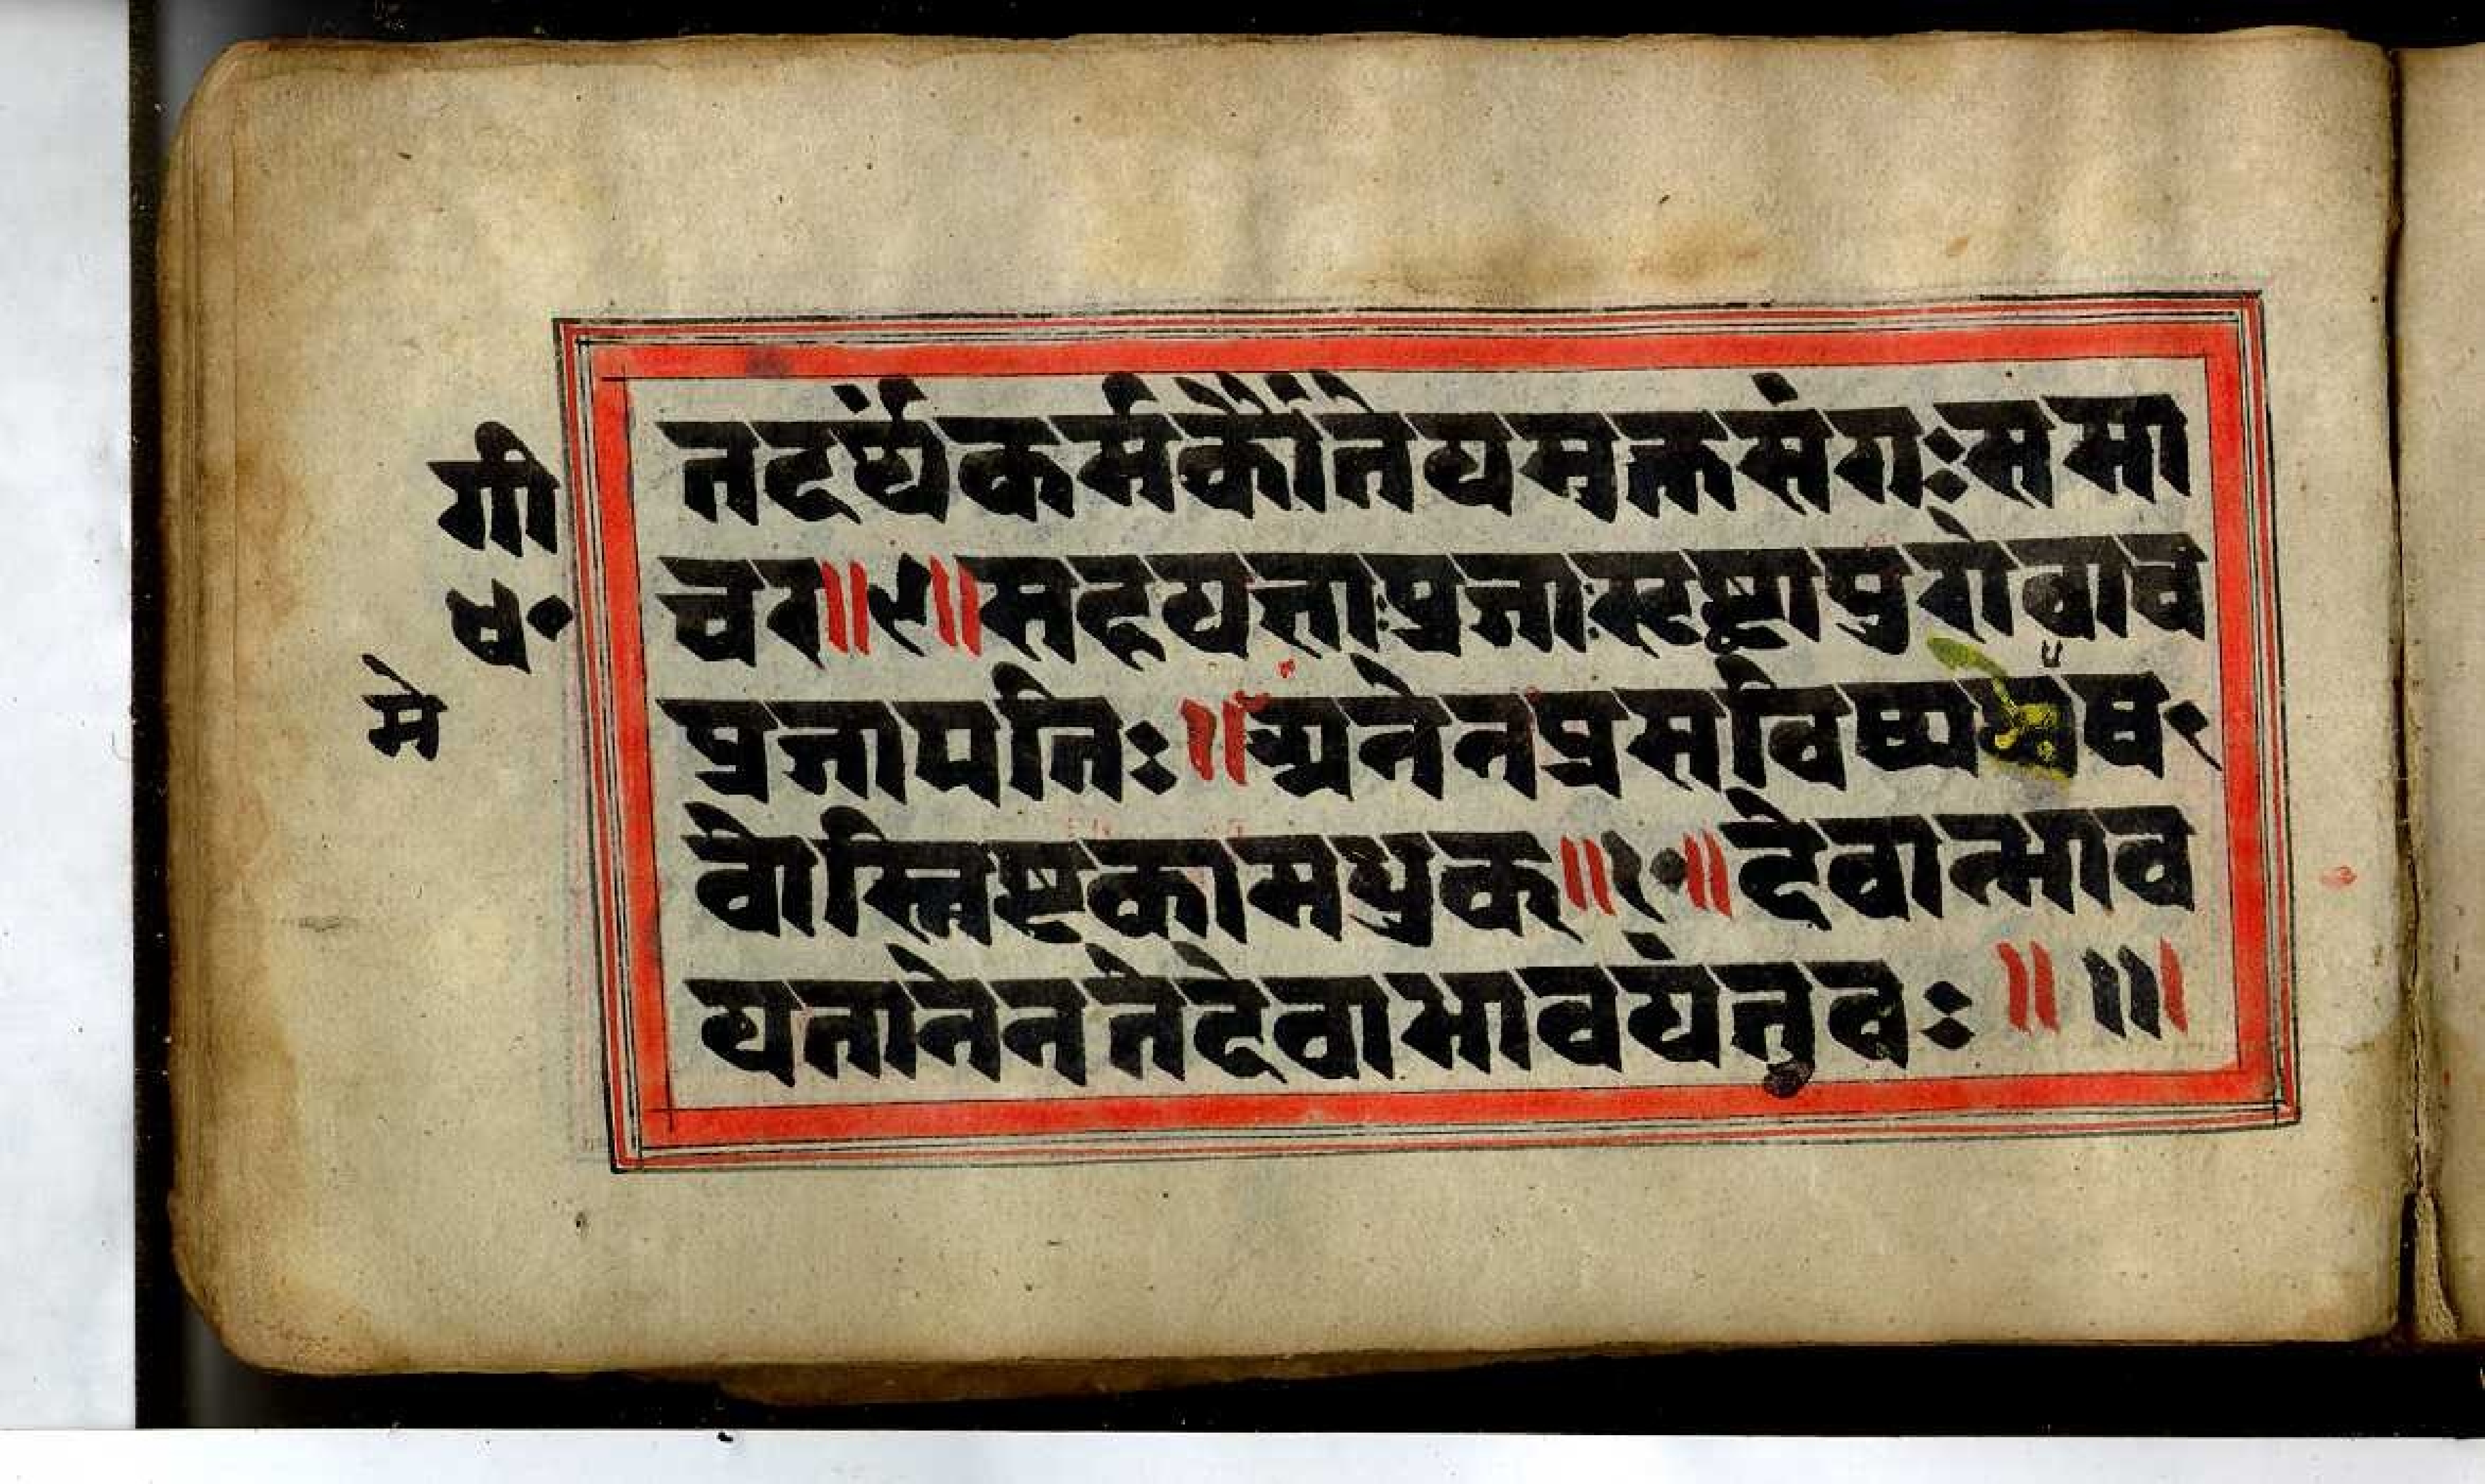 गी
तदर्थंकर्मकौंतेयमुक्तसंगःसमा
चर॥९॥सहयज्ञाःप्रजाःसृष्ट्वापुरोवाच
ष॰
मे
प्रजापतिः॥अनेनप्रसविष्यध्वमेष
वोस्त्विष्टकामधुक्॥१०॥देवान्भाव
यतानेनतेदेवाभावयंतुवः॥